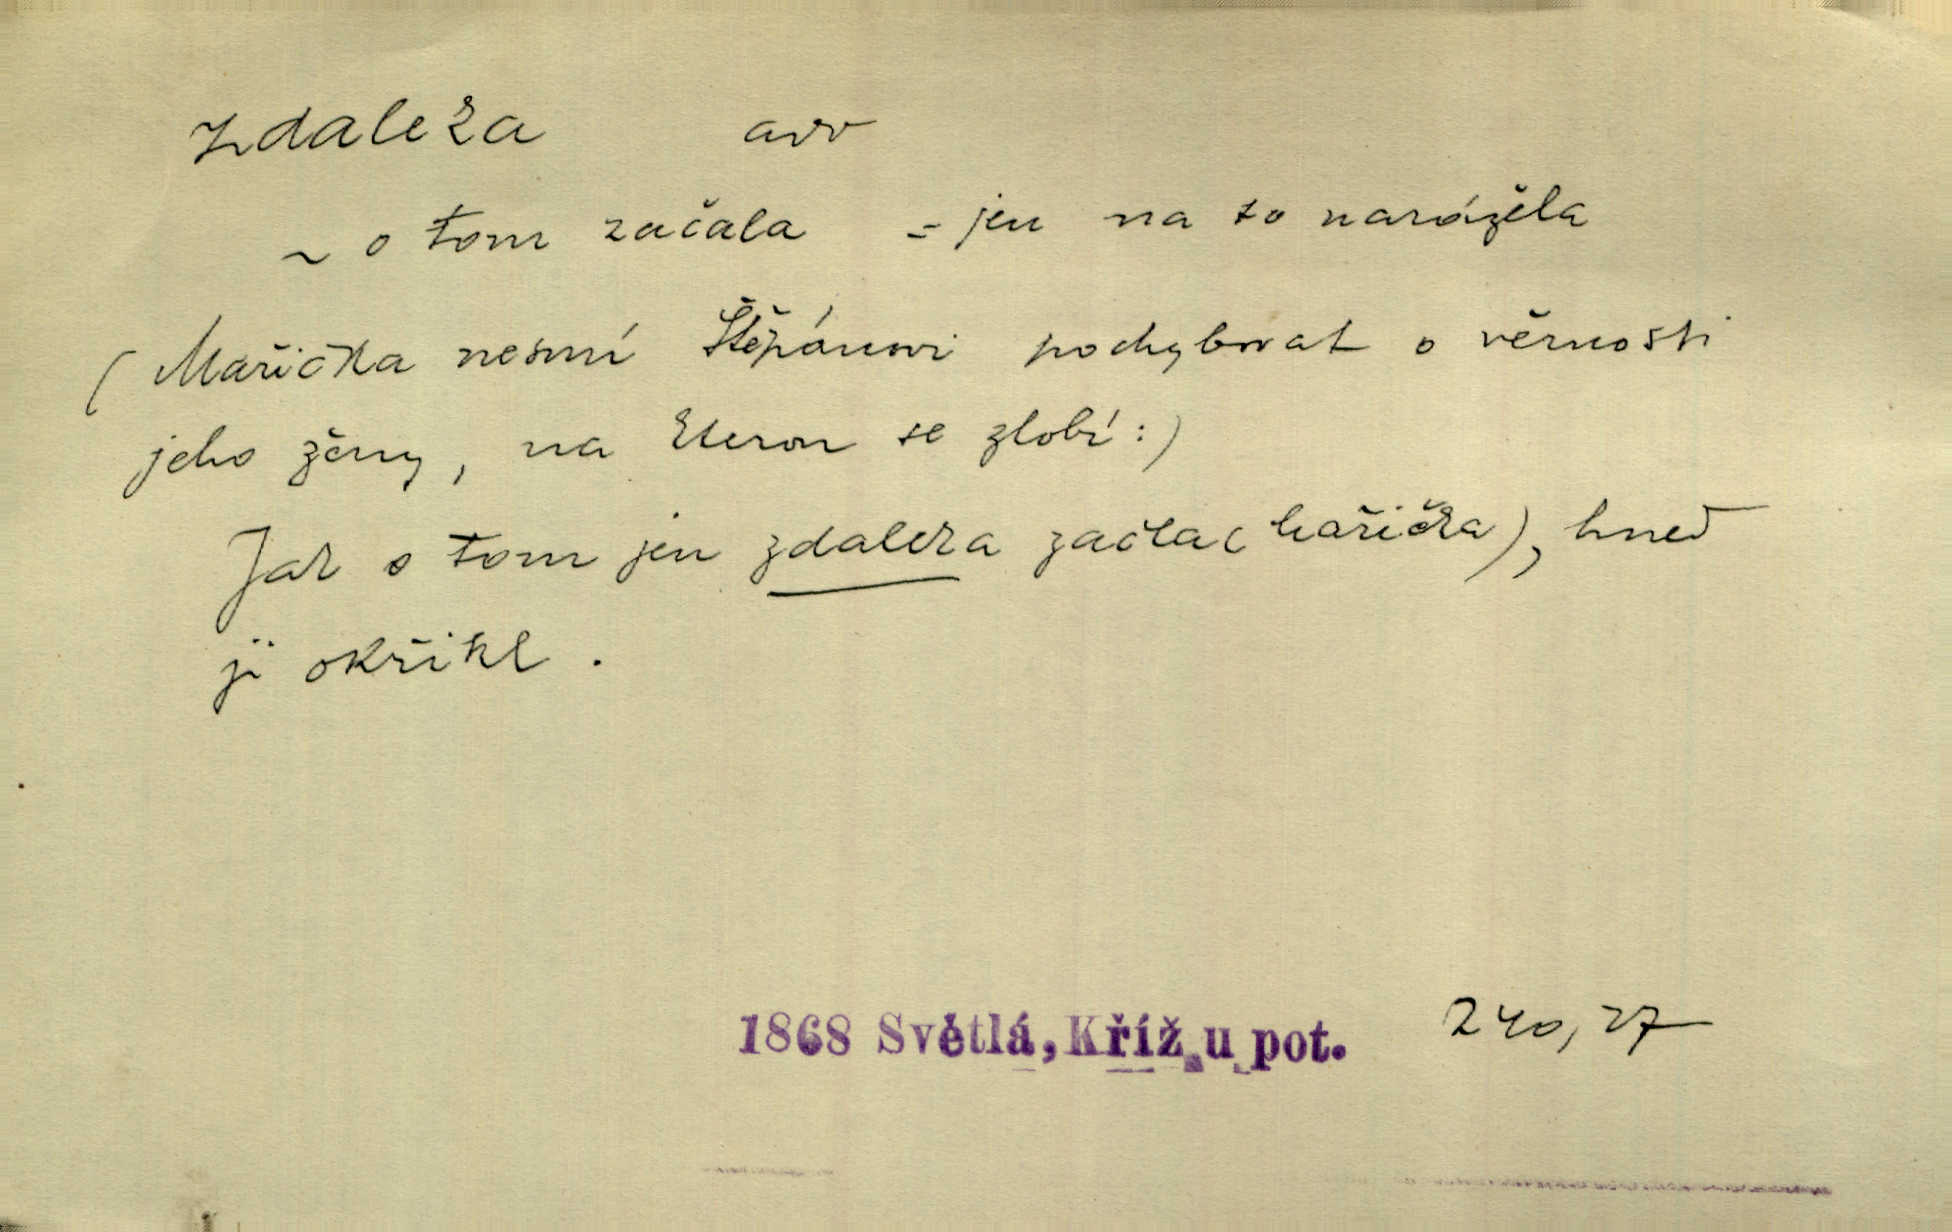 zdaleka adv
~ o tom začala = jen na to narážela
(Mařička nesmí Štěpánovi pochybovat o věrnosti
jeho ženy, na kterou se zlobí:)
Jak o tom jen zdaleka začla (Mařička), hned
ji okřikl.
1868 Světlá, Kříž u pot. 240, 27